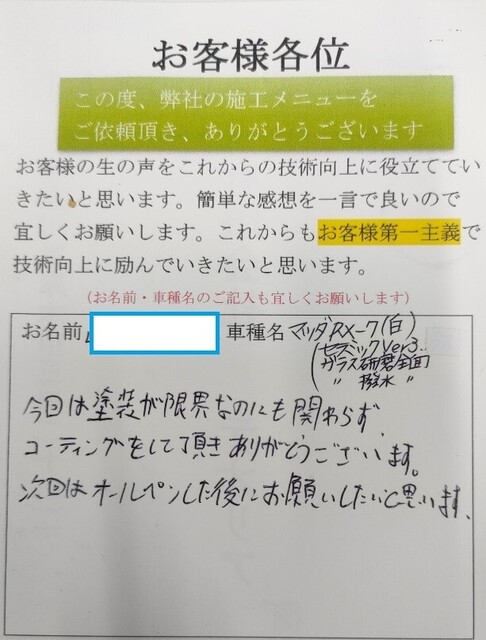 お客様各位
この度、弊社の施工メニューを
ご依頼頂き、ありがとうございます
お客様の生の声をこれからの技術向上に役立ててい
きたいと思います。簡単な感想を一言で良いので
宜しくお願いします。これからもお客様第一主義で
技術向上に励んでいきたいと思います。
(お名前・車種名のご記入も宜しくお願いします)
お名前 車種名 マツダRX-7(白)
(セラミックVer3..
ガラス研磨全面
〃 撥水 〃
今回は塗装が限界なのにも関わらず、
コーティングをして頂きありがとうございます。
次回はオールペンした後にお願いしたいと思います、